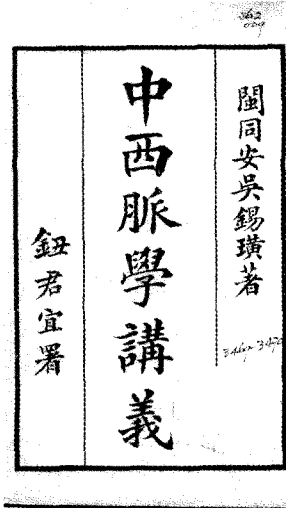 閩同安吳錫璜著
中西脈學講義
鈕君宜署